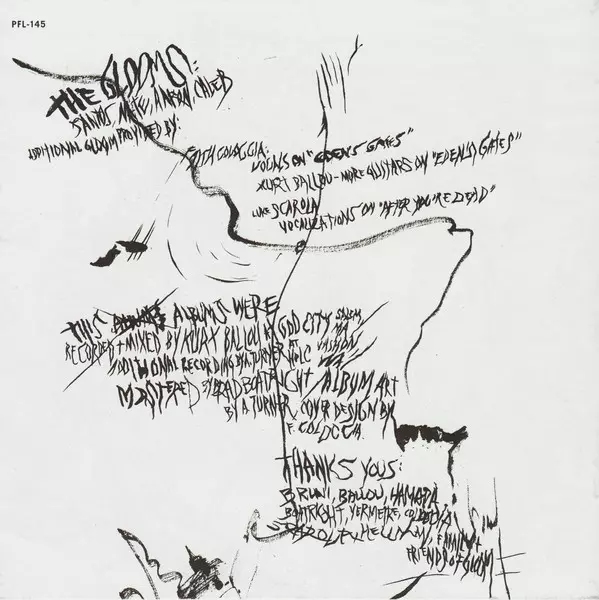 PFL-145
THE GLOOMS:
SANTOS, NATE, AARON, CALEB
ADDITIONAL GLOOM PROVIDED BY:
FAITH COLOCCIA:
VOCALS ON "EDEN'S GATES"
KURT BALLOU - MORE GUITARS ON "EDEN'S GATES"
LUKE SCAROLA
VOCALIZATIONS ON "AFTER YOU'RE DEAD"
THIS ALBUMS WERE
RECORDED + MIXED BY KURT BALLOU AT GOD CITY SALEM, MA
ADDITIONAL RECORDING BY A. TURNER AT HOLC VASHON, WA
MASTERED BY BRAD BOATRIGHT
ALBUM ART
BY A. TURNER, COVER DESIGN BY
F. COLOCCIA
THANKS YOUS:
BRUNI, BALLOU, HAMADA
BOATRIGHT, YERMETRE, COLOCCIA
SCAROLA, HELLKAMP, FAMILY +
FRIENDS OF GLOOM